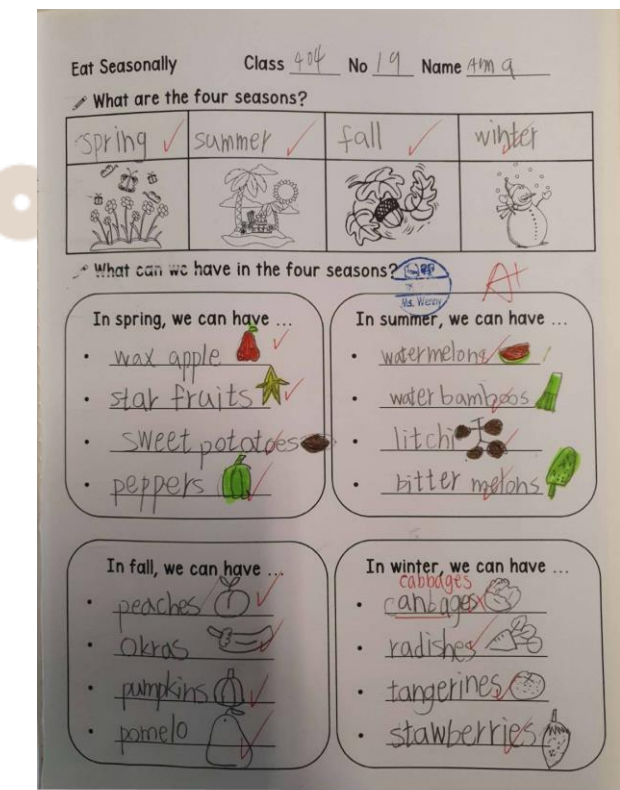 Eat Seasonally Class 404 No 19 Name Anna
What are the four seasons?
spring summer fall winter
What can we have in the four seasons?
Ms. Wenny
A+
In spring, we can have ...
wax apple
star fruits
sweet potatoes
peppers
In summer, we can have ...
watermelons
water bamboos
litchi
bitter melons
In fall, we can have ...
peaches
okras
pumpkins
pomelo
In winter, we can have ...
cabbages
canbages
radishes
tangerines
stawberries